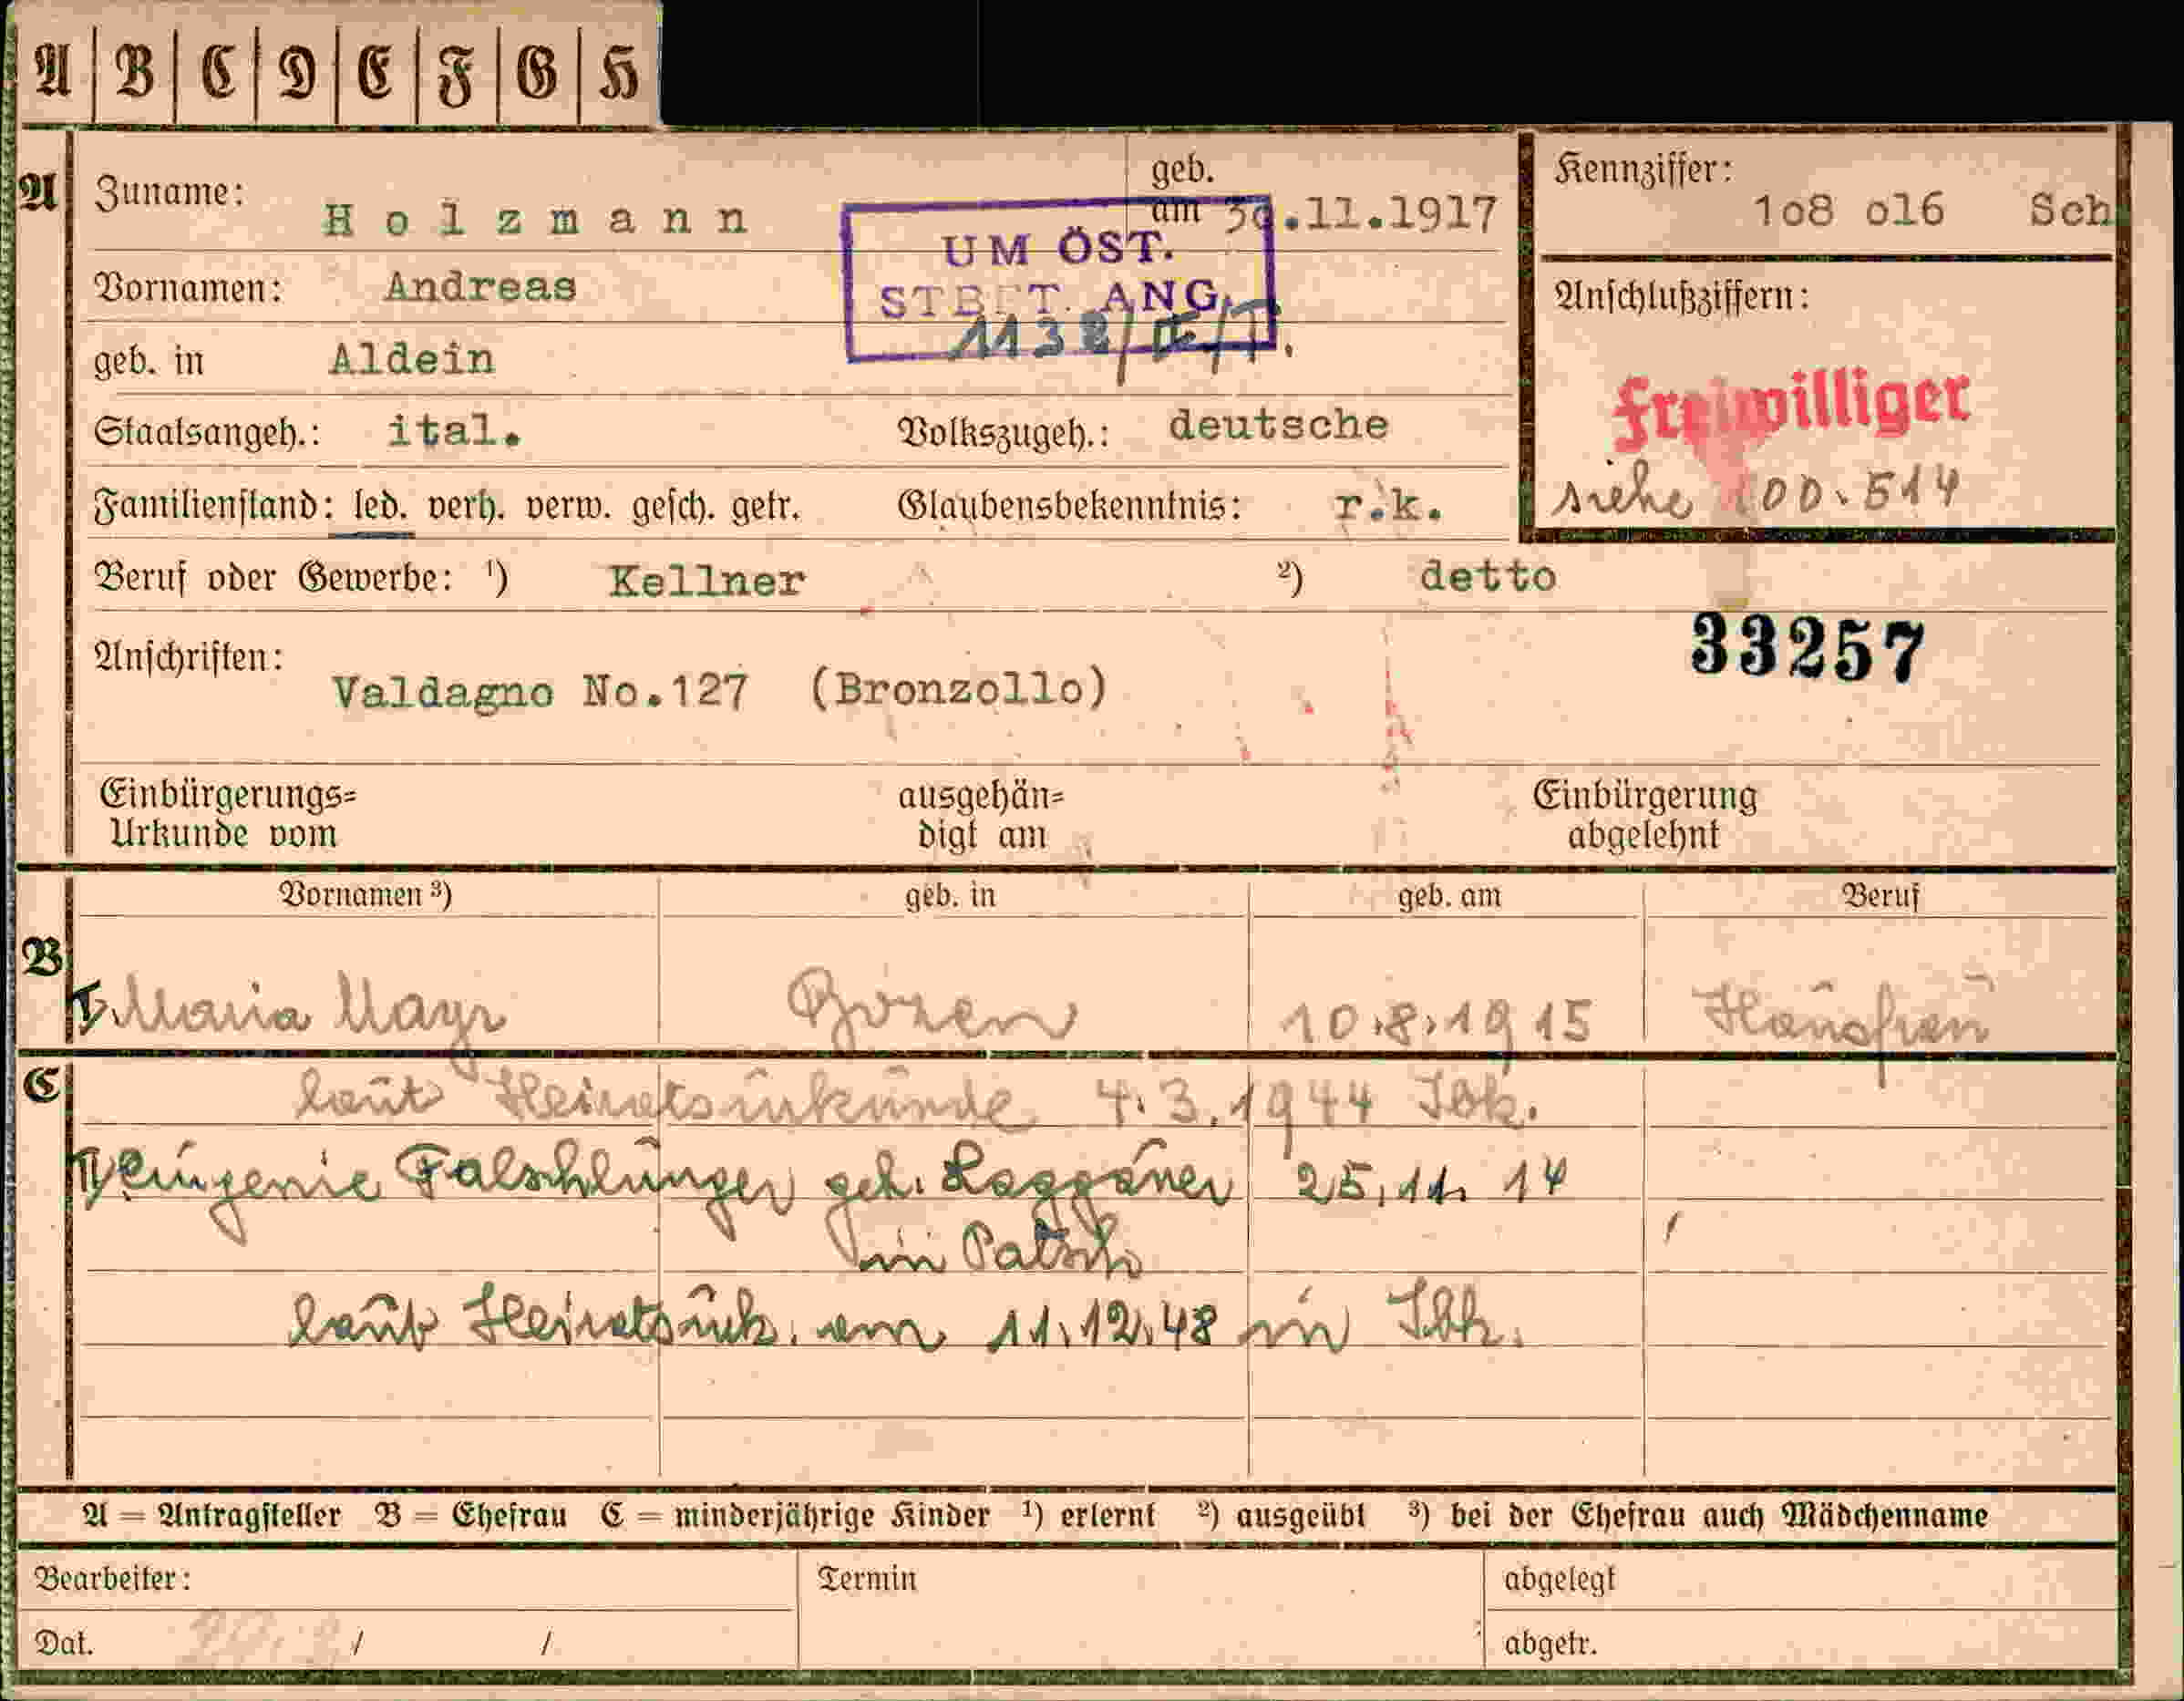 A B C D E F G H
A Zuname: Holzmann
geb. am 30.11.1917
Kennziffer: 1o8 o16 Sch
UM ÖST.
STBET. ANG.
Vornamen: Andreas
Anschlußziffern:
geb. in Aldein
Freiwilliger
Staatsangeh.: ital. Volkszugeh.: deutsche
siehe 100.514
Familienstand: led. verh. verw. gesch. getr. Glaubensbekenntnis: r.k.
Beruf oder Gewerbe: ¹) Kellner ²) detto
33257
Anschriften: Valdagno No.127 (Bronzollo)
Einbürgerungs=
Urkunde vom
ausgehän=
digt am
Einbürgerung
abgelehnt
Vornamen ³) geb. in geb. am Beruf
B I. Maria Mayr Bozen 10.8.1915 Hausfrau
C laut Heiratsurkunde 4.3.1944 Ibk.
II Eugenie Falschlunger geh. 25.11.14
in Patsch
laut Heiratsurk. am 11.12.48 in Ibk.
A = Antragsteller B = Ehefrau C = minderjährige Kinder ¹) erlernt ²) ausgeübt ³) bei der Ehefrau auch Mädchenname
Bearbeiter: Termin abgelegt
Dat. / / abgetr.